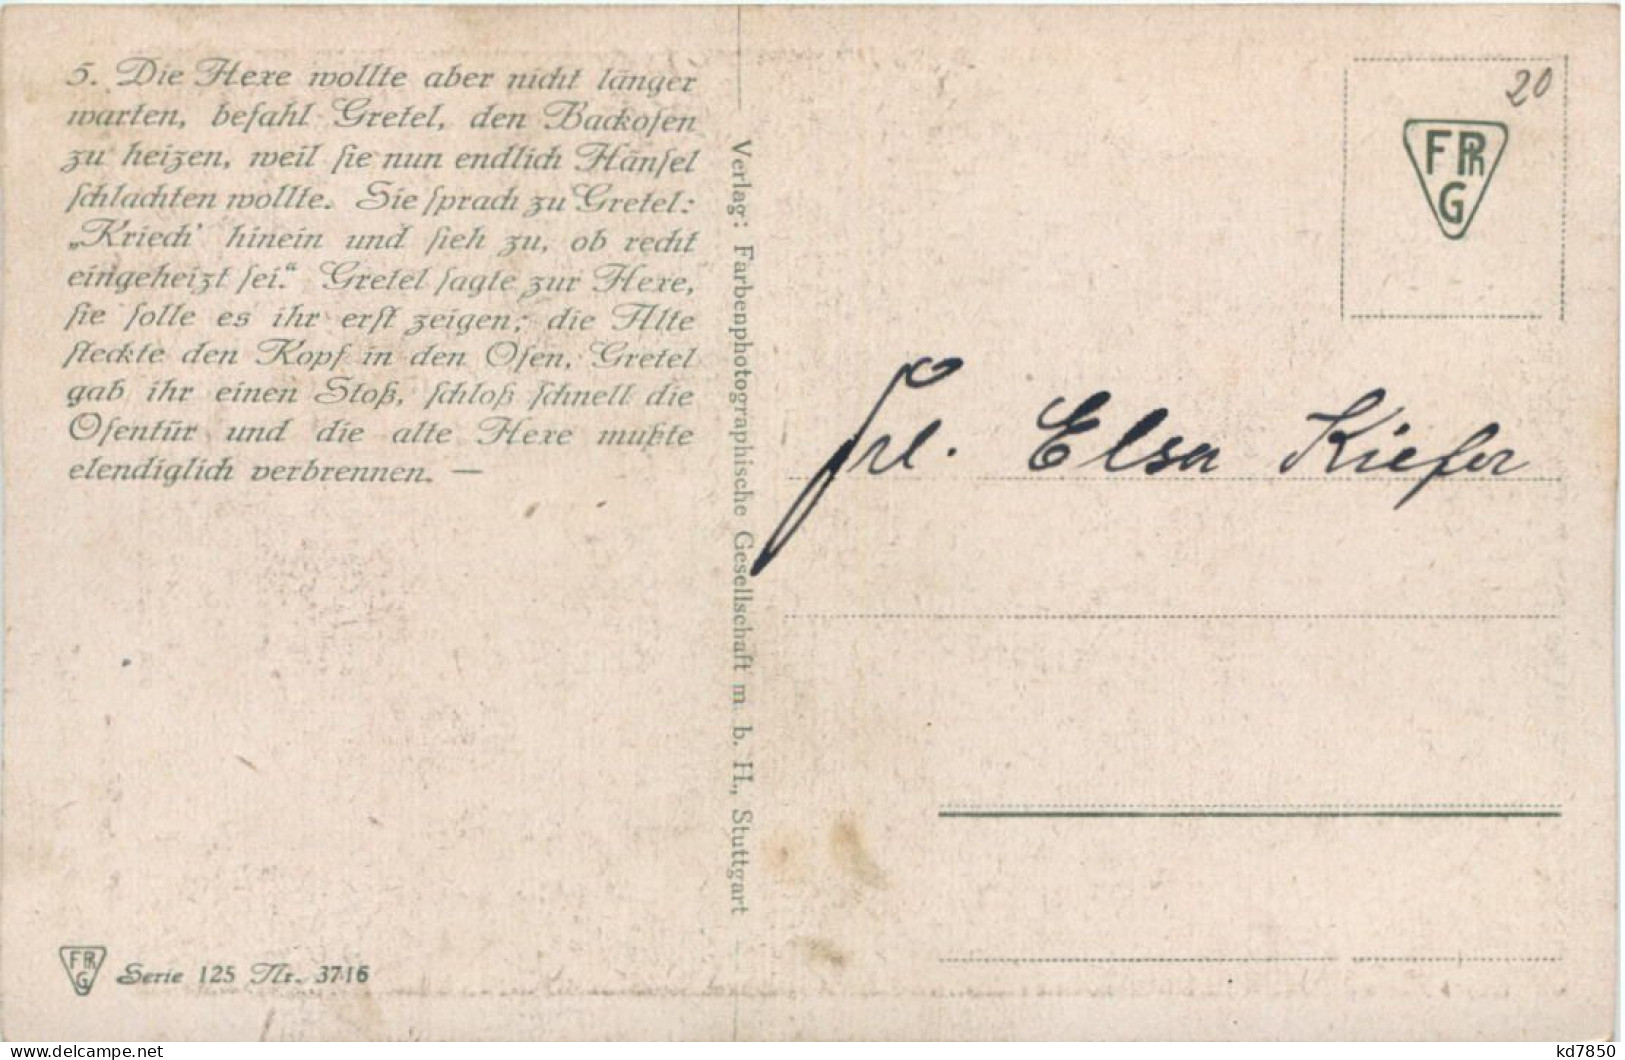 5. Die Hexe wollte aber nicht länger
warten, befahl Gretel, den Backofen
zu heizen, weil sie nun endlich Hänsel
schlachten wollte. Sie sprach zu Gretel:
„Kriech' hinein und sieh zu, ob recht
eingeheizt sei.“ Gretel sagte zur Hexe,
sie solle es ihr erst zeigen; die Alte
steckte den Kopf in den Ofen, Gretel
gab ihr einen Stoß, schloß schnell die
Ofentür und die alte Hexe mußte
elendiglich verbrennen. —
FPhG Serie 125 Nr. 3716
Verlag: Farbenphotographische Gesellschaft m. b. H., Stuttgart
20
FPh
G
Frl. Elsa Kiefer
kd7850